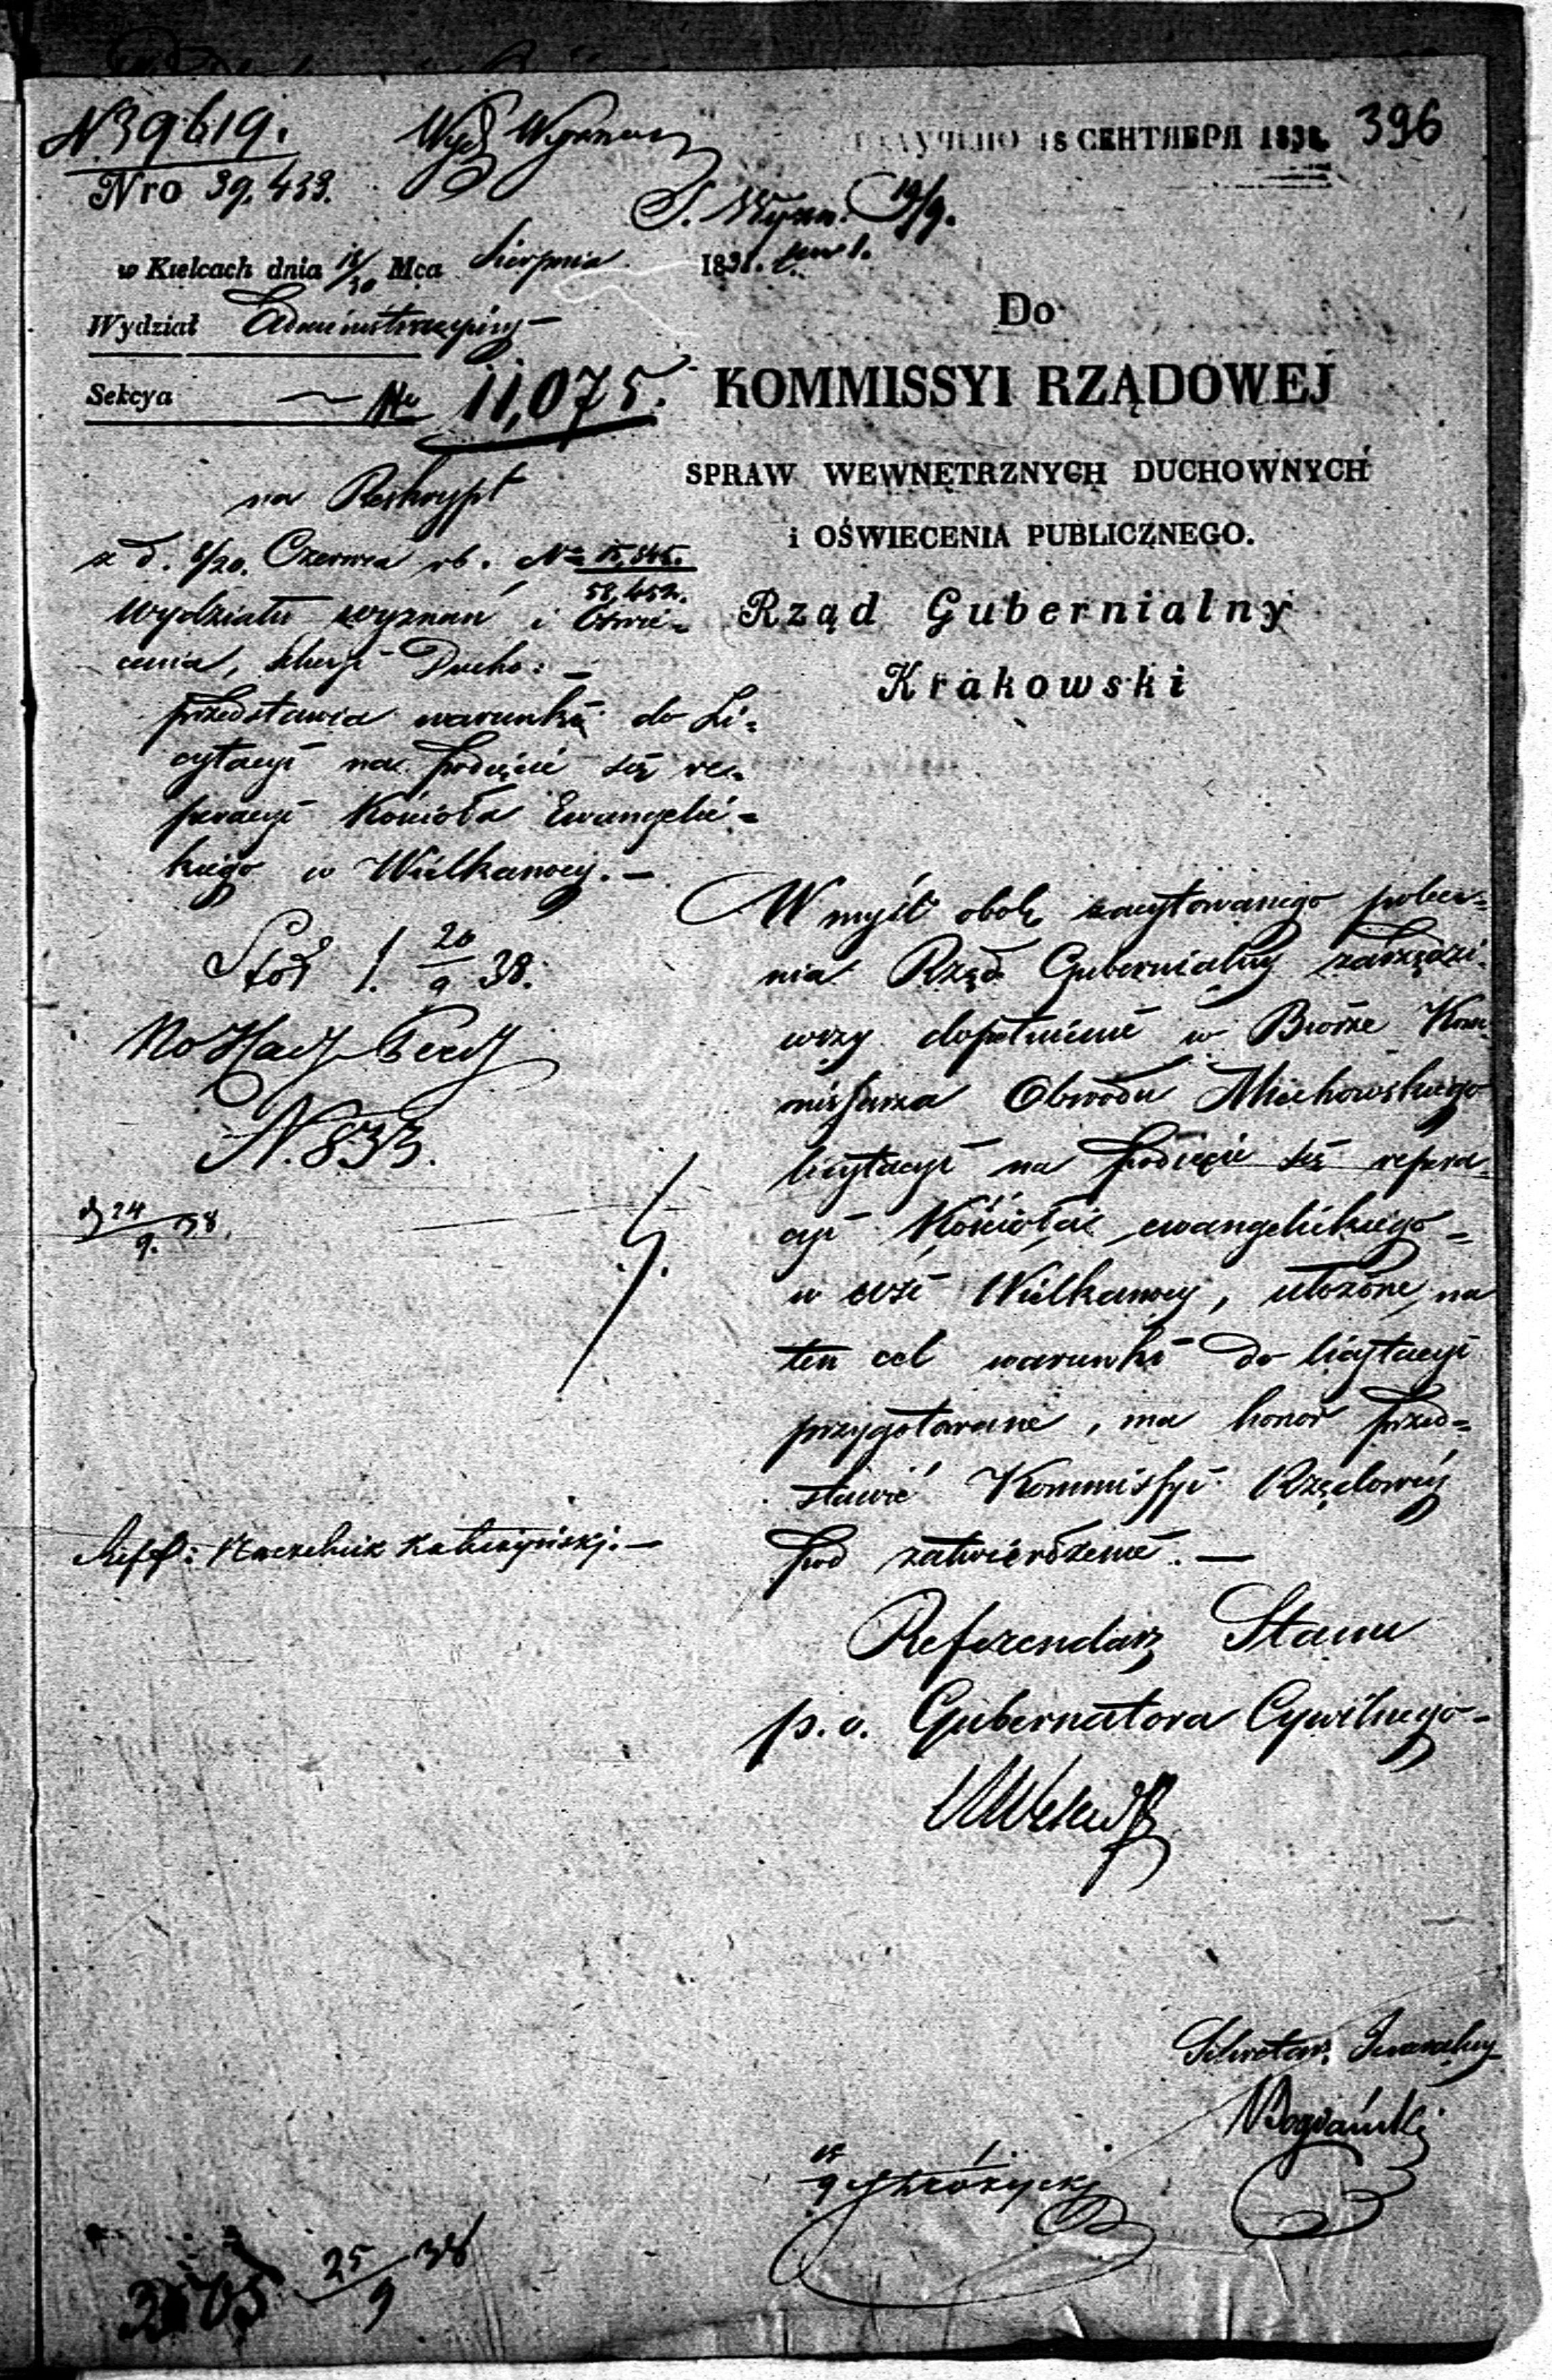 N 39619.
396
18 СЕНТЯБРЯ 1838.
Nro 39,433.
w Kielcach dnia 18/30 Mca Sierpnia 1838.
Wydział Administracyiny
Do
KOMMISSYI RZĄDOWEJ
SPRAW WEWNĘTRZNYCH DUCHOWNYCH
i OŚWIECENIA PUBLICZNEGO.
Rząd Gubernialny
Krakowski
Sekcya No 11,075.
na Reskrypt
z d. 8/20. Czerwca rb. No
Wydziału wyznań i Oświe=
cenia, Sekcyi Ducho: —
przedstawia warunki do Li=
cytacyi na podięcie się re=
peracyi Kościoła Ewangelic=
kiego w Wielkanocy. —
20/9 38.
N. 833.
24/9. 38.
W myśl obok zacytowanego polece=
nia Rząd Gubernialny zarządzi=
wszy dopełnienie w Biórze Kom=
missarza Obwodu Miechowskiego
licytacyi na podięcie się repera=
cyi Kościoła ewangelickiego=
w wsi Wielkanocy, ułożone na
ten cel warunki do licytacyi
przygotowane, ma honor przed=
stawić Kommissyi Rządowéy
pod zatwierdzenie. —
Reff: Naczelnik
Referendarz Stanu
p. o. Gubernatora Cywilnego
Sekretarz Jeneralny
Bogdański
25/9 38